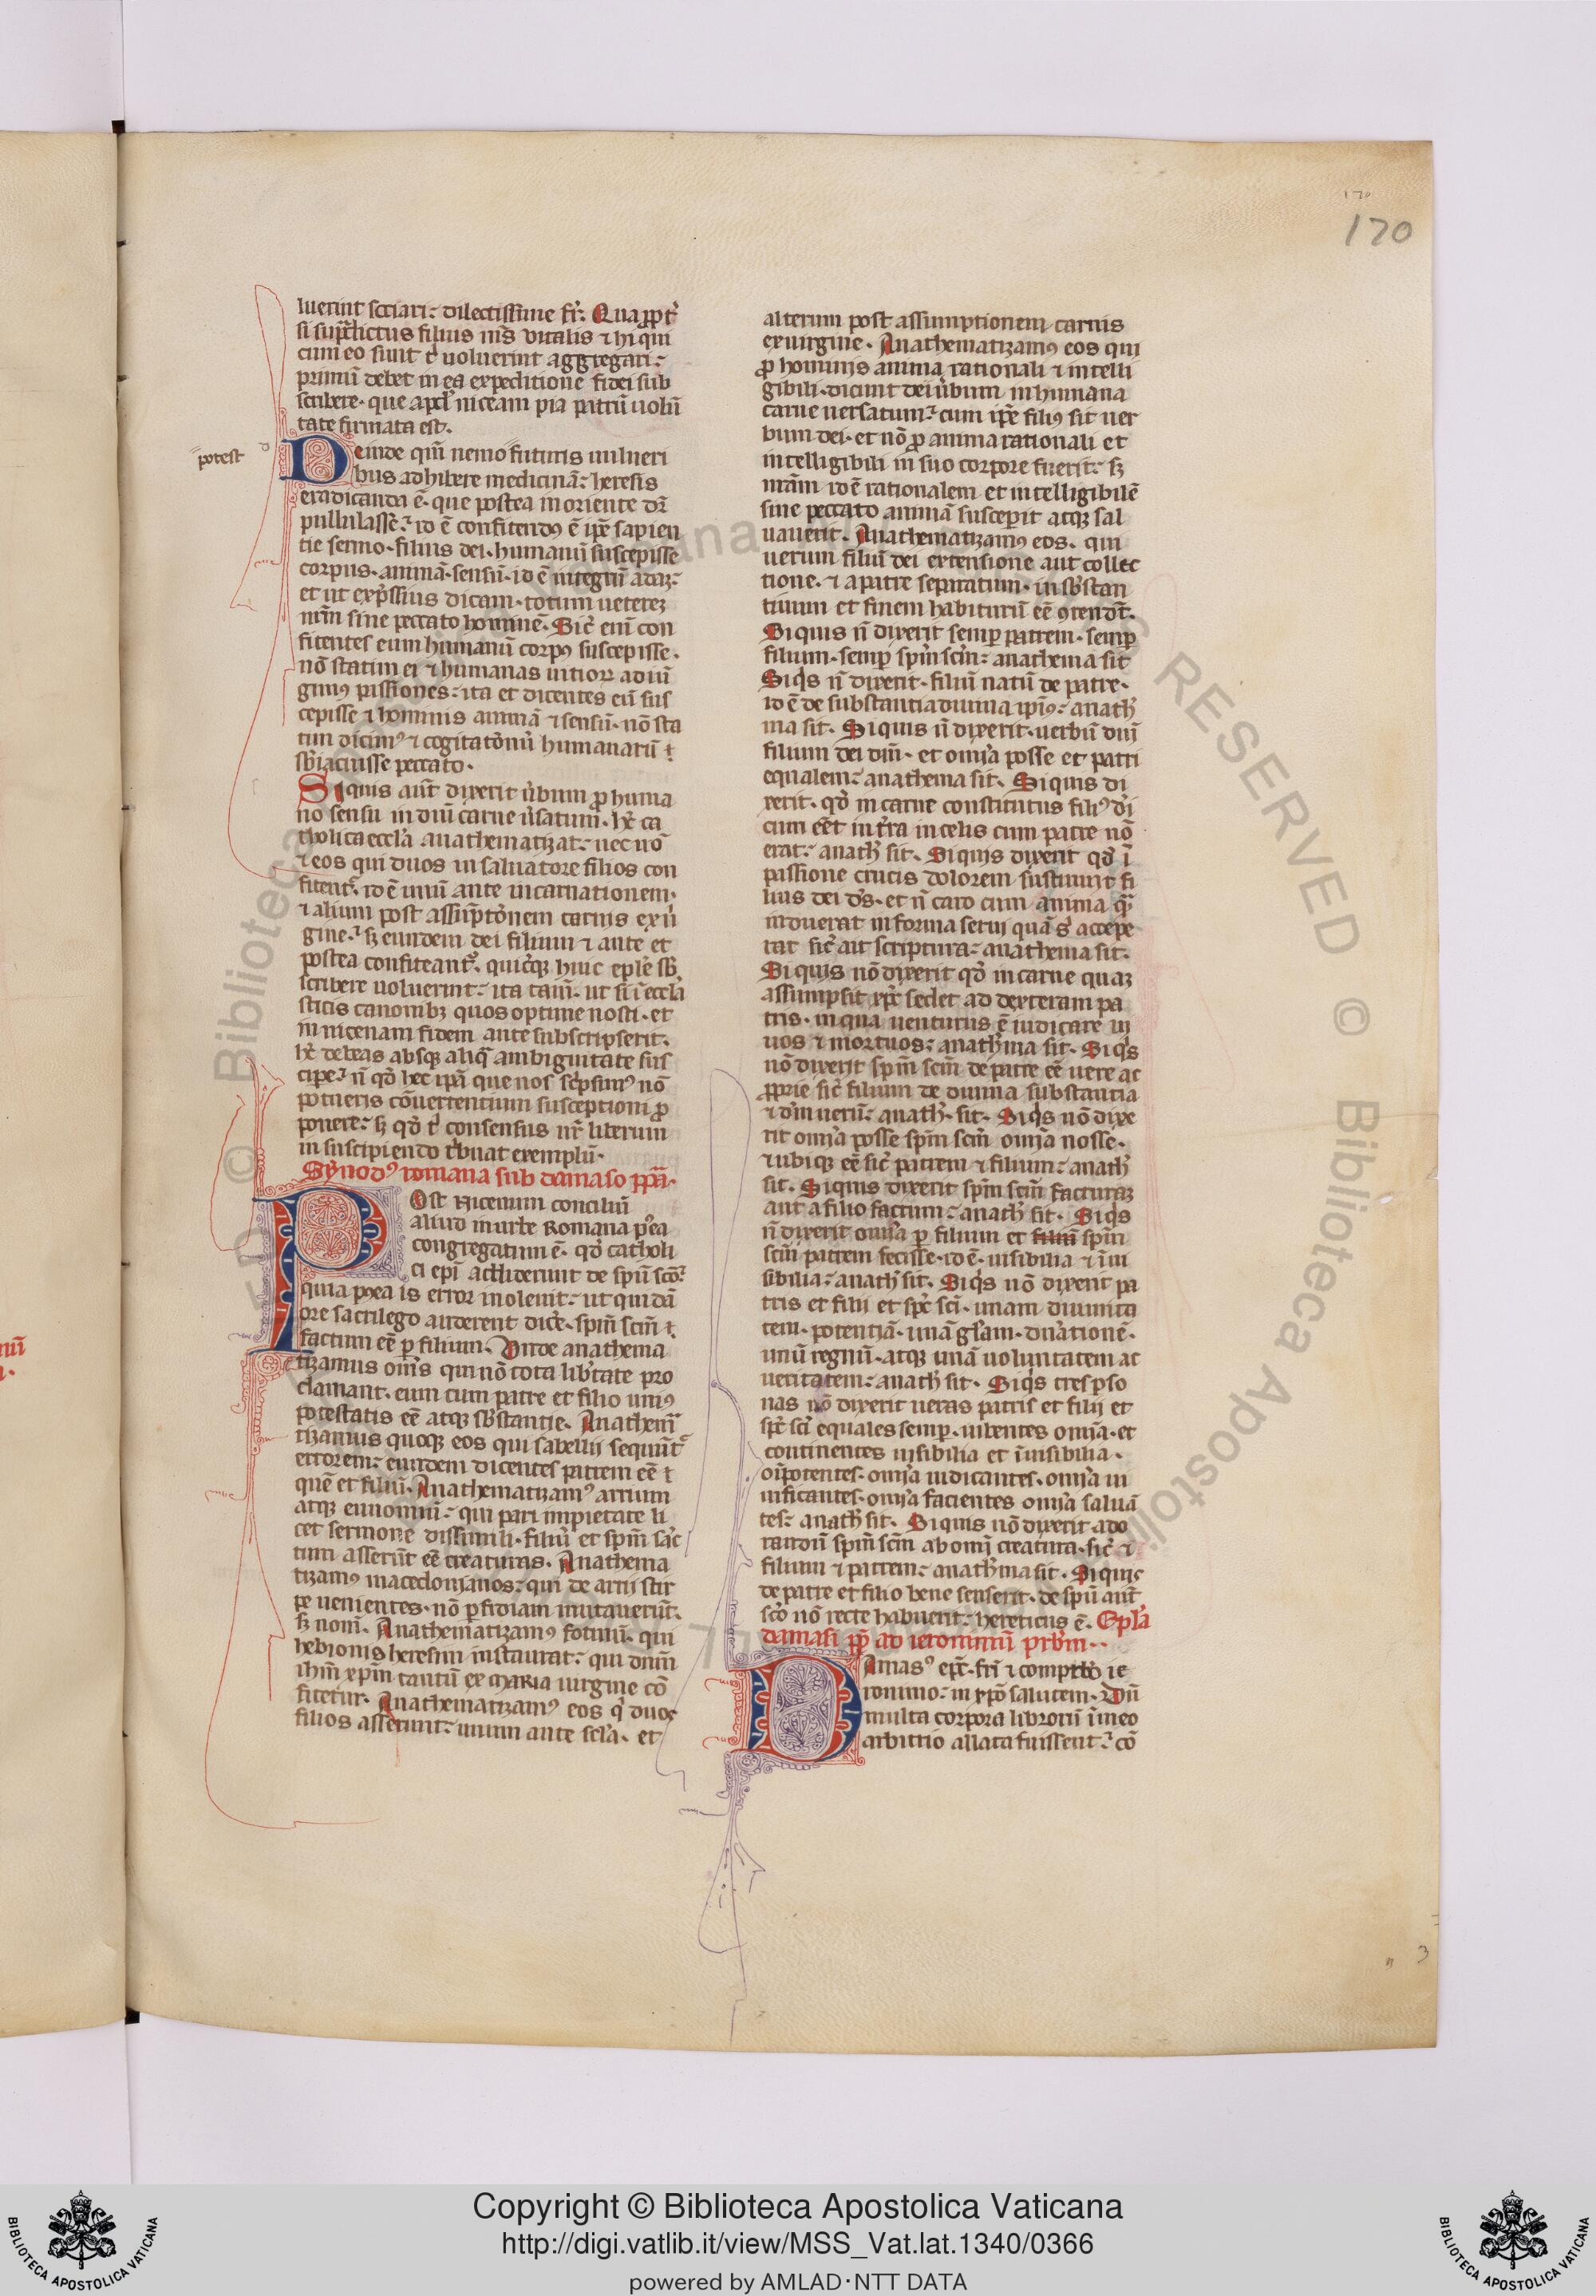 170
170
luerint sociari: dilectissime fr̄. Quaꝓpt̉
si supͣdictus filius nr̄ vitalis ⁊ hi qui
cum eo sunt tͥ uoluerint aggregari:
primū debet in ea expeditione fidei sub
scribere. que apd̉ niceam pia patrū uolū
tate firmata est.
Deinde qm̄ nemo futuris uulneri
potest
bus adhibere medicinā: heresis
eradicanda ē. que postea in oriente dr̄
pullulasse: id ē confitendꝰ ē ip̄e sapien
tie sermo. filius dei. humanū suscepisse
corpus. animā. sensū. id ē integrū adaꝫ:
et ut exp̄ssius dicam. totum ueterēꝫ
nr̄m sine peccato hominē. Sic̉ eni con
fitentes eum humanū corpꝰ suscepisse.
nō statim ei ⁊ humanas uitioꝝ adiū
gimꝰ passiones: ita et dicentes eū sus
cepisse ⁊ hominis animā ⁊ sensū. nō sta
tim dicimꝰ ⁊ cogitatōnū humanaꝝ ū
sb̉iacuisse peccato.
Si quis aut̄ dixerit ūbum ꝓ huma
no sensu in dn̄i carne ūsatum. hc̉ ca
tholica eccl̉a anathematizat: nec nō
⁊ eos qui duos in saluatore filios con
fitent͛. id ē unū ante incarnationem.
⁊ alium post assūptōnem carnis ex ū
gine: sꝫ eundem dei filium ⁊ ante et
postea confiteant͛. quicūqꝫ huic epl̉e sb̉
scribere uoluerint: ita tam̄. ut si ī eccl̉a
sticis canonibꝫ quos optime nosti. et
in nicenam fidem ante subscripserit.
hc̉ debeas absqꝫ aliqͣ ambiguitate sus
cipe: n̄ qd̉ hec ip̄a que nos sc̉psimꝰ nō
potueris cōuertentium susceptioni ꝓ
ponere: sꝫ qd̉ tͥ consensus nr̄ liberum
in suscipiendo tͥbuat exemplū.
Sẏnodꝰ romana sub damaso pp̄a.
POst Nicenum conciliū
aliud in urbe Romana p̉ea
congregatum ē. qd̉ catholi
ci epī addiderunt de spū scō:
quia p̉ea is error inoleuit: ut quidā
ore sacrilego auderent dic̉e. spm̄ scm̄ ⁊
factum eē ꝑ filium. Unde anathema
tizamus om̄s qui nō tota lib̉tate pro
clamant. eum cum patre et filio uniꝰ
potestatis eē atqꝫ sb̉stantie. Anathemͣ
tizamus quoqꝫ eos qui sabellij sequūt͛
errorem: eundem dicentes patrem eē ⁊
quē et filiū. Anathematizamꝰ arrium
atqꝫ eunomiū: qui pari impietate li
cet sermone dissimili. filiū et spm̄ sāc
tum asserūt eē creaturas. Anathema
tizamꝰ macedonianos: qui de arrij stir
pe uenientes. nō ꝑfidiam mutauerūt.
sꝫ nom̄. Anathematizamꝰ fotinū. qui
hebionis heresim instaurat: qui dnm̄
ihm̄ xpm̄ tantū ex Maria uirgine cō
fitetur. Anathematizamꝰ eos qͥ duos
filios asserunt: unum ante scl̉a. et
alterum post assumptionem carnis
ex uirgine. Anathematizamꝰ eos qui
ꝓ hominis anima rationali ⁊ intelli
gibili. dicunt dei ūbum in humana
carne uersatum: cum ip̄e filiꝰ sit uer
bum dei. et nō ꝓ anima rationali et
intelligibili in suo corpore fuerit: sꝫ
nr̄am id ē rationalem et intelligibilē
sine peccato animā susceperit atqꝫ sal
uauerit. Anathematizamꝰ eos. qui
uerum filiū dei extensione aut collec
tione. ⁊ a patre separatum. insb̉stan
tiuum et finem habiturū eē ꝯtendūt.
Siquis n̄ dixerit semꝑ patrem. semꝑ
filium. semꝑ spm̄ scm̄: anathema sit
Siqͥs n̄ dixerit. filiū natū de patre.
id ē de substantia diuina ipiꝰ: anath̉
ma sit. Siquis n̄ dixerit. uerbū dn̄i
filium dei dm̄. et om̄ia posse et patri
equalem: anathema sit. Siquis di
xerit. qd̉ in carne constitutus filiꝰ di
cum eēt in tr̄a in celis cum patre nō
erat: anath̉ sit. Siquis dixerit qd̉ ī
passione crucis dolorem sustinuit fi
lius dei ds̉. et n̄ caro cum anima qͣ
induerat in forma serui quā s̉ accepe
rat sic̉ ait scriptura: anathema sit.
Siquis nō dixerit qd̉ in carne quaꝫ
assumpsit xp̄c sedet ad dexteram pa
tris. in qua uenturus ē iudicare ui
uos ⁊ mortuos: anath̉ma sit. Siqͥs
nō dixerit spm̄ scm̄ de patre eē uere ac
ꝓprie sic̉ filium de diuina substantia
⁊ dm̄ uerū: anath̉. sit. Siqͥs nō dixe
rit om̄ia posse spm̄ scm̄ om̄ia nosse.
⁊ ubiqꝫ eē sic̉ patrem ⁊ filium: anath̉
sit. Siquis dixerit spm̄ scm̄ facturaꝫ
aut a filio factum: anath̉ sit. Siqͥs
n̄ dixerit om̄ia ꝑ filium et filiū spm̄
scm̄ patrem fecisse. id ē. uisibilia ⁊ īui
sibilia: anath̉ sit. Siqͥs nō dixerit pa
tris et filij et spc̄ sci. unam diuinita
tem. potentiā. unā gl̉am. dnatione̅.
unū regnū. atqꝫ unā uoluntatem ac
ueritatem: anath̉ sit. Siqͥs tres ꝑso
nas nō dixerit ueras patris et filij et
spc̄ sci equales semꝑ. uiuentes om̄ia. et
continentes uisibilia et īuisibilia.
oīpotentes. om̄ia iudicantes. om̄ia ui
uificantes. om̄ia facientes om̄ia saluā
tes: anath̉ sit. Siquis nō dixerit ado
randū spm̄ scm̄ ab omī creatura. sic̉ ⁊
filium ⁊ patrem: anath̉ma sit. Siquis
de patre et filio bene senserit. de spū aut̄
scō nō recte habuerit: hereticus ē. Epl̉a
damasi pp̄ ad ieronimū prb̉m..
DAmasꝰ epc̄. fr̄i ⁊ comprb̉o ie
ronimo: in xpō salutem. Dū
multa corpora librorū ī meo
arbitrio allata fuissent: cō
Copyright © Biblioteca Apostolica Vaticana
http://digi.vatlib.it/view/MSS_Vat.lat.1340/0366
powered by AMLAD·NTT DATA
BIBLIOTECA APOSTOLICA VATICANA
BIBLIOTECA APOSTOLICA VATICANA